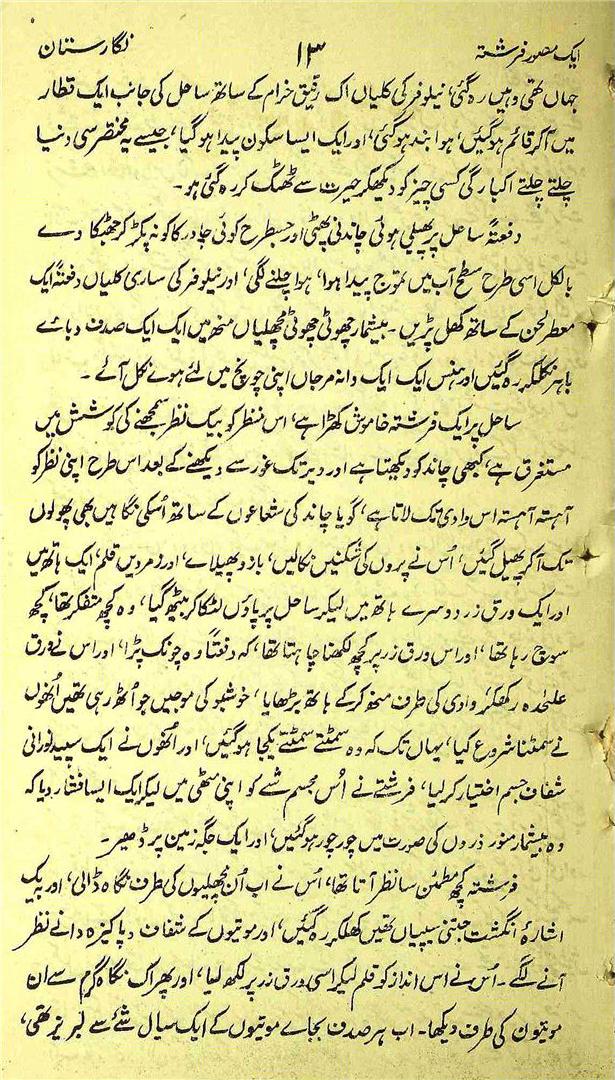 ایک مصور فرشتہ ۱۳ نگارستان
جہاں تھی وہیں رہ گئی، نیلوفر کی کلیاں اک رقیق خرام کے ساتھ ساحل کی جانب ایک قطار
میں آکر قائم ہوگئیں، ہوا بند ہوگئی، اور ایک ایسا سکون پیدا ہوگیا، جیسے یہ مختصر سی دنیا
چلتے چلتے اکبارگی کسی چیز کو دیکھکر حیرت سے ٹھٹک کر رہ گئی ہو۔
دفعتہً ساحل پر پھیلی ہوئی چاندنی پھٹی اور جسطرح کوئی چادر کا کونہ پکڑ کر جھٹکا دے
بالکل اسی طرح سطح آب میں تموج پیدا ہوا، ہوا چلنے لگی، اور نیلوفر کی ساری کلیاں دفعتہً ایک
معطر لحن کے ساتھ کھل پڑیں۔ بیشمار چھوٹی چھوٹی مچھلیاں منھ میں ایک ایک صدف دبائے
باہر نکلکر رہ گئیں اور ہنس ایک ایک دانہ مرجاں اپنی چونچ میں لئے ہوئے نکل آئے۔
ساحل پر ایک فرشتہ خاموش کھڑا ہے، اس منظر کو بیک نظر سمجھنے کی کوشش میں
مستغرق ہے، کبھی چاند کو دیکھتا ہے اور دیر تک غور سے دیکھنے کے بعد اس طرح اپنی نظر کو
آہستہ آہستہ اس وادی تک لاتا ہے، گویا چاند کی شعاعوں کے ساتھ اُسکی نگاہیں بھی پھولوں
تک آکر پھیل گئیں، اُس نے پروں کی شکنیں نکالیں، بازو پھیلائے، اور زمردیں قلم، ایک ہاتھ میں
اور ایک ورق زر دوسرے ہاتھ میں لیکر ساحل پر پاؤں لٹکا کر بیٹھ گیا، وہ کچھ متفکر تھا، کچھ
سوچ رہا تھا، اور اس ورق زر پر کچھ لکھنا چاہتا تھا، کہ دفعتاً وہ چونک پڑا، اور اس نے ورق
علٰحدہ رکھکر، وادی کی طرف منھ کرکے ہاتھ بڑھایا، خوشبو کی موجیں جو اُٹھ رہی تھیں اُنھوں
نے سمٹنا شروع کیا، یہاں تک کہ وہ سمٹتے سمٹتے یکجا ہوگئیں، اور اُنھوں نے ایک سپید نورانی
شفاف جسم اختیار کر لیا، فرشتے نے اُس مجسم شے کو اپنی مٹھی میں لیکر ایک ایسا فشار دیا کہ
وہ بیشمار منور ذروں کی صورت میں چور چور ہوگئیں، اور ایک جگہ زمین پر ڈھیر۔
فرشتہ کچھ مطمئن سا نظر آتا تھا، اُس نے اب اُن مچھلیوں کی طرف نگاہ ڈالی، اور بیک
اشارۂ انگشت جتنی سیپیاں تھیں کھلکر رہ گئیں، اور موتیوں کے شفاف و پاکیزہ دانے نظر
آنے لگے۔ اُس نے اس انداز کو قلم لیکر اسی ورق زر پر لکھ لیا، اور پھر اک نگاہ گرم سے ان
موتیون کی طرف دیکھا۔ اب ہر صدف بجائے موتیوں کے ایک سیال شئے سے لبریز تھی،